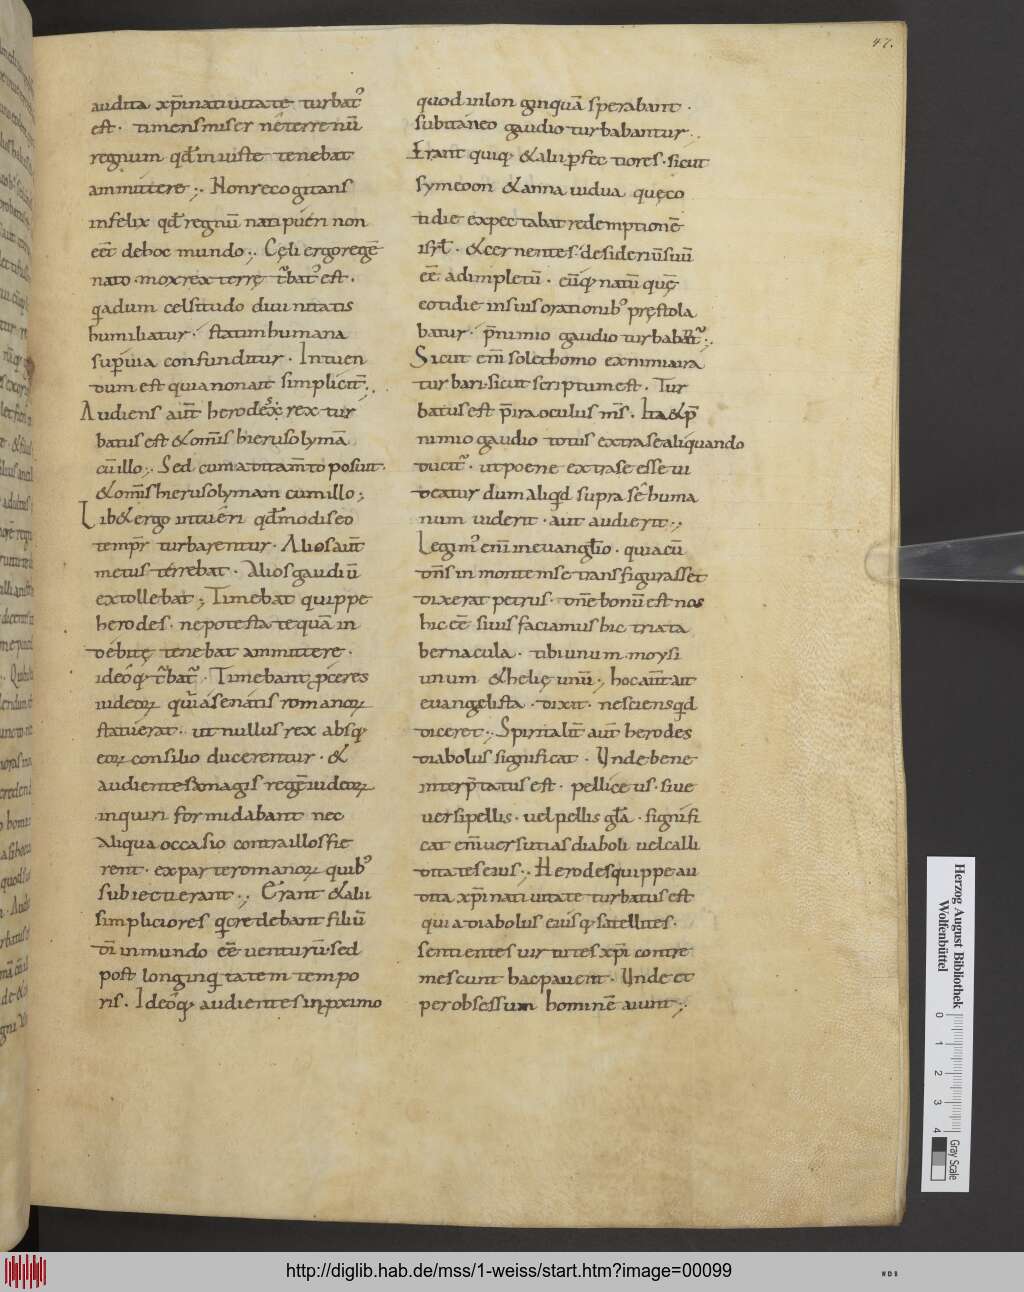 47.
audita xp̄i nativitate turbat᾽
est · timens miser nē terrenū
regnum qd̄ iniuste tenebat
ammittere ;· Non recogitans
infelix qd̄ regnū nati pueri non
eēt de hoc mundo ;· Cęli ergo regē
nato · mox rex terrę t̄bat᾽ est ·
quadum celsitudo divinitatis
humiliatur · statim humana
sup̄bia confunditur · Intuen
dum est quia non ait simplicit̄ ;·
Audiens aūt herodes rex tur
batus est & om̄is hierusolymā
cū illo ;· Sed cum additam̄to posuit ·
& om̄is hierusolymam cum illo ;
Lib& ergo intuēri qd̄ modis eo
tempr̄ turbarentur · Alios aūt
metus terrebat · Alios gaudiū
extollebat ; Timebat quippe
herodes · ne potestatē quā in
debitę tenebat ammittere ·
ideoq; t̄bat᾽ · Timebant p̄ceres
iudeoꝝ quia senatus romanoꝝ
statuerat · ut nullus rex absq;
eoꝝ consilio diceretur · &
audientes a magis regē iudeoꝝ
inquiri formidabant nec
aliqua occasio contra illos fie
rent · ex parte romanoꝝ quib᾽
subiecti erant ;· Erant & alii
simpliciores q̄ credebant filiū
dī in mundo eēe venturū · sed
post longinqui tatem tempo
ris · Ideoq; audientes in pximo
quod in longinquā sperabant ·
subitaneo gaudio turbabantur ;·
Erant quiq; & alii ꝑfectiores · sicut
symeon & anna vidua quę co
tidie expectabat redemptionē
isrł · & cernentes desideriū suū
eē adimpletū · eūq; natū quē
cotidie in suis orationib᾽ pręstola
batur · p̄ nimio gaudio turbabāt᾽ ;·
Sicut enī sol& homo ex nimia ira
turbari · sicut scriptum est · Tur
batus est p̄ ira oculus m̄s · Ita & p̄
nimio gaudio totus extra se aliquando
ducit᾽ · ut poene extra se esse vi
deatur dum aliqd supra se huma
num viderit · aut audierit ;·
Legim᾽ enī in evanglīo · quia cū
dn̄s in monte inse transfigurass&
dixerat petrus · dn̄e bonū est nos
hic eē si vis faciamus hic tria ta
bernacula · tibi unum moysi
unum & helię unū ; hoc aūt ait
evangelista · dixit · nesciens qd
diceret ;· Spiritalit̄ aūt herodes
diabolus significat · Unde bene
interp̄tatus est · pelliceus · sive
versipellis · vel pellis gl̄a · signifi
cat enī versutias diaboli vel calli
ditates eius ;· Herodes quippe au
dita xp̄i nativitate turbatus est
quia diabolus eiusq; satellites ·
sentientes virtutes xp̄i contre
mescunt hac pavent · Unde et
per obsessum hominē aiunt ;·
Herzog August Bibliothek
Wolfenbüttel
0 1 2 3 4
Gray Scale
http://diglib.hab.de/mss/1-weiss/start.htm?image=00099